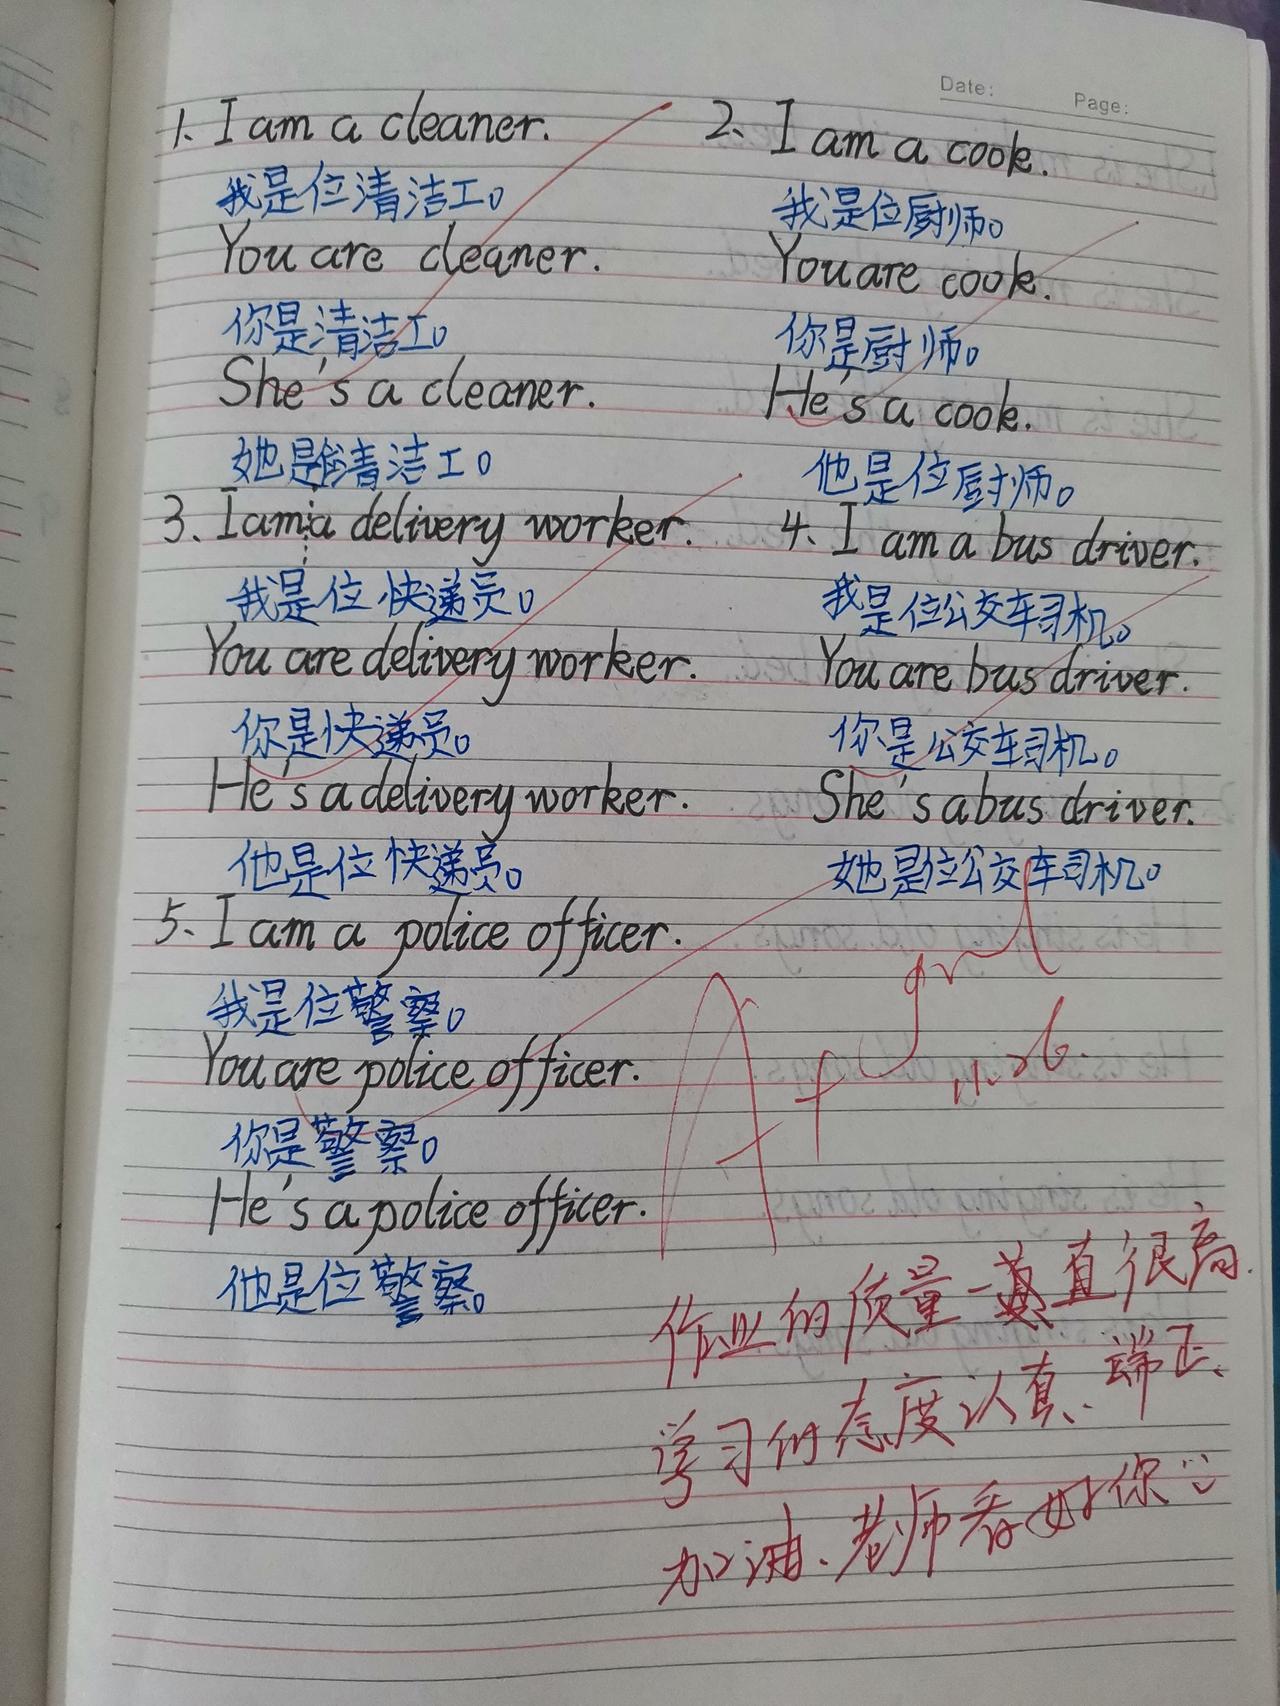 Date:
Page:
1. I am a cleaner.
我是位清洁工。
You are cleaner.
你是清洁工。
She's a cleaner.
她是清洁工。
2. I am a cook.
我是位厨师。
You are cook.
你是厨师。
He's a cook.
他是位厨师。
3. I am a delivery worker.
我是位快递员。
You are delivery worker.
你是快递员。
He's a delivery worker.
他是位快递员。
4. I am a bus driver.
我是位公交车司机。
You are bus driver.
你是公交车司机。
She's a bus driver.
她是位公交车司机。
5. I am a police officer.
我是位警察。
You are police officer.
你是警察。
He's a police officer.
他是位警察。
A+ great
11.26.
作业的质量一直很高.
学习的态度认真、端正、
加油.老师看好你